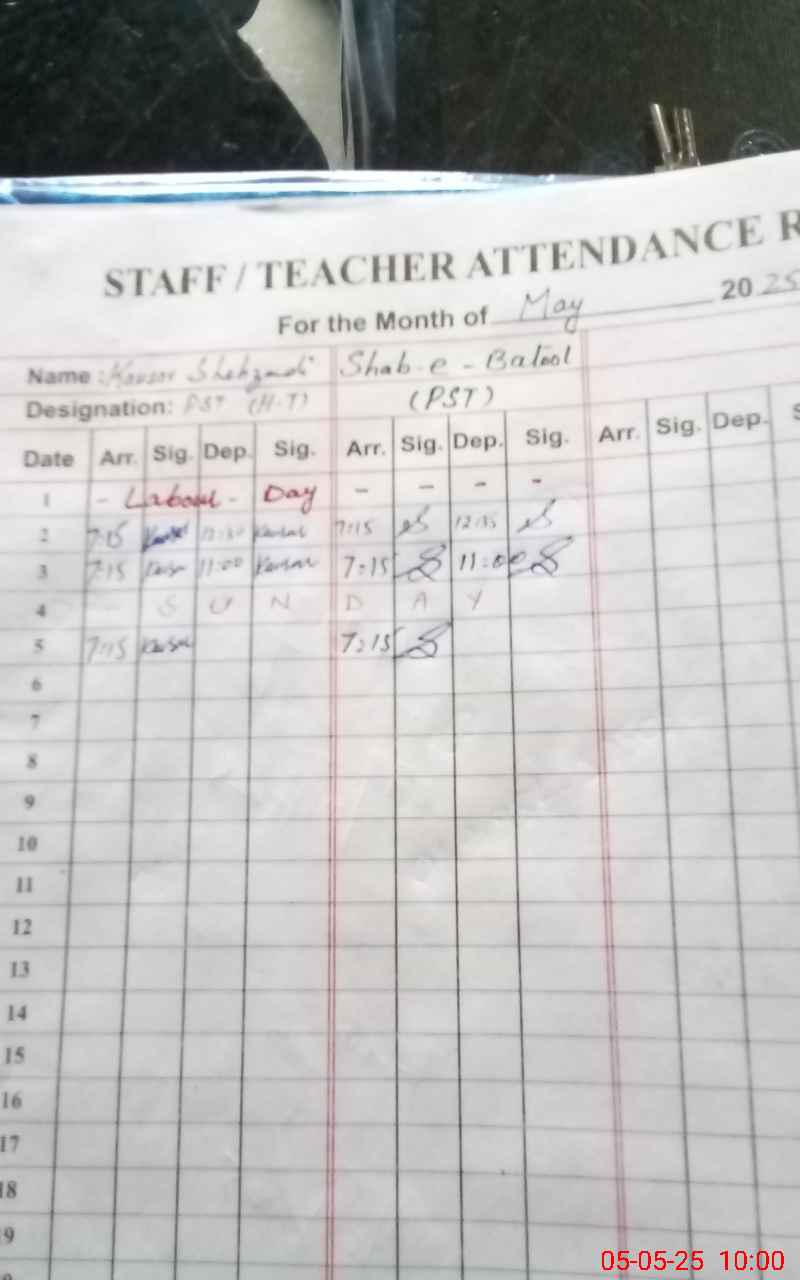 STAFF / TEACHER ATTENDANCE R
For the Month of May 2025
Name: Kousar Shehzadi Shab-e-Batool
Designation: PST (H-T) (PST)
Date Arr. Sig. Dep. Sig. Arr. Sig. Dep. Sig. Arr. Sig. Dep. S
1 - Labour - Day - - - -
2 7:15 Kausar 12:30 Kausar 7:15 12:35
3 7:15 Kausar 11:00 Kausar 7:15 11:00
4 - S U N D A Y
5 7:15 Kausar 7:15
6
7
8
9
10
11
12
13
14
15
16
17
18
9
05-05-25 10:00